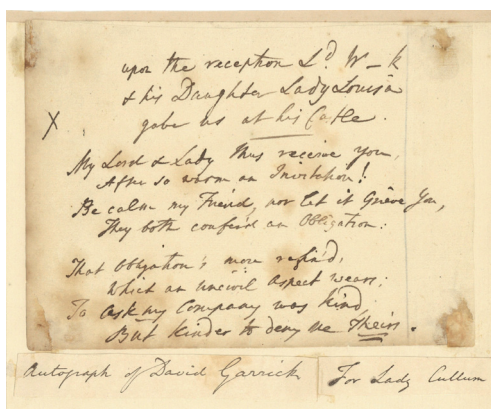 upon the reception Ld. W-k
& his Daughter Lady Louisa
X gave us at his Castle.
My Lord & Lady thus receive you,
After so warm an Invitation!
Be calm my Friend, nor let it Grieve You,
They both confer'd an Obligation:
That Obligation's more refin'd,
Which an uncivil aspect wears;
To ask my Company was kind,
But kinder to deny me Theirs.
Autograph of David Garrick
For Lady Cullum